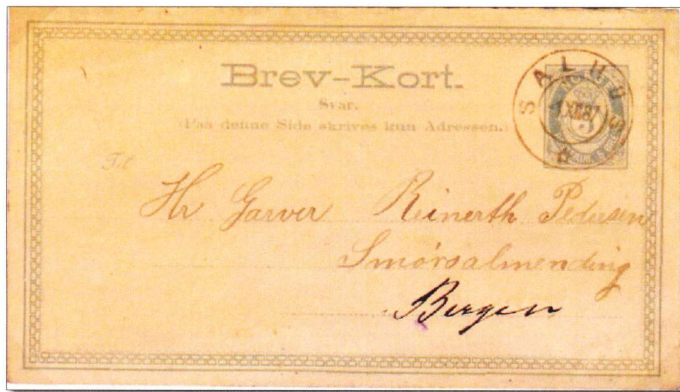 Brev-Kort.
Svar.
(Paa denne Side skrives kun Adressen.)
Til
SALHUUS
Hr Garver Reinerth Pedersen
Smørsalmending
Bergen